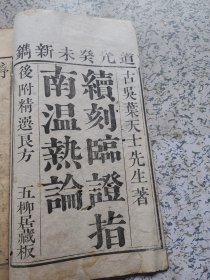 道光癸未新鐫
古吳葉天士先生著
續刻臨證指
南温熱論
後附精選良方
五柳居藏板
序